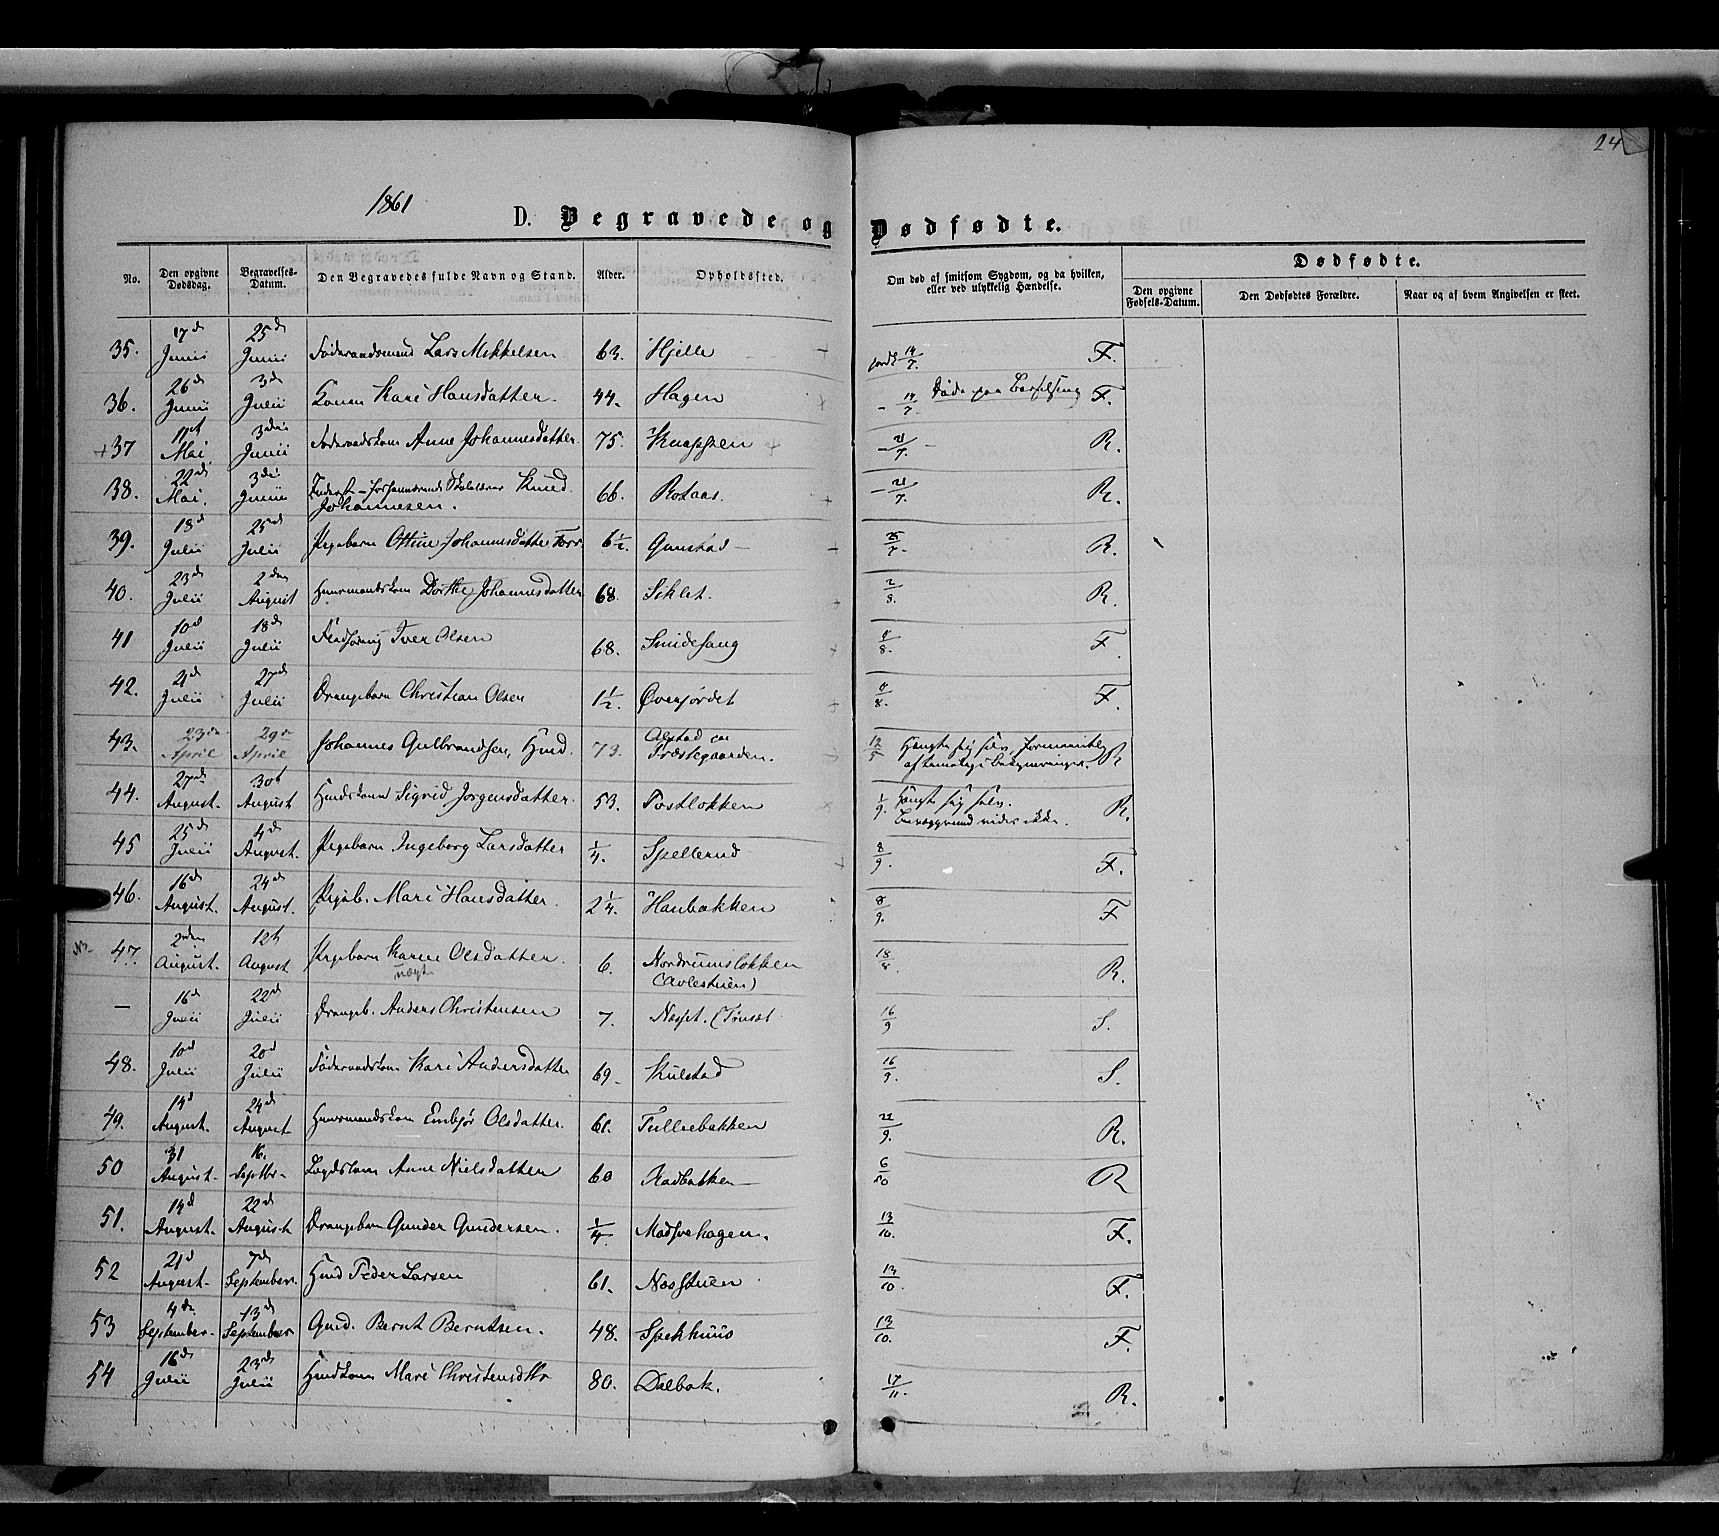 24
1861
D. Begravede og Dødfødte.
No. Den opgivne Dødsdag. Begravelses-Datum. Den Begravedes fulde Navn og Stand. Alder. Opholdssted. Om død af smitsom Sygdom, og da hvilken, eller ved ulykkelig Hændelse. Dødfødte.
Den opgivne Fødsels-Datum. Den Dødfødtes Forældre. Naar og af hvem Angivelsen er skeet.
35. 17d Junii 25d Junii Føderaadsmand Lars Mikkelsen 63. Hjelle 14/7. F.
36. 26d Junii 3d Julii Konen Kari Hansdatter. 44. Hagen - 14/7. Døde paa Barselseng F.
+37 11t Mai 3die Junii Anne Johannesdatter 75. Knappen - 21/7. - R.
38. 22d Mai. 3die Junii Knud Johannesen. 66. Rotaas. - 21/7. R.
39. 18d Julii 25d Julii Pigebarn Ottine Johannesdatter 6 1/2. Gunstad - 25/7. R.
40. 23d Julii 2den August Huusmandskone Dorthe Johannesdatter 68. Siklet. 2/8. R.
41 10d Julii 18d Julii Iver Olsen 68. Smidesang 8. F.
42. 21d Julii 27d Julii Drengebarn Christian Olsen 1 1/2. Øverjordet 8. F.
43. 23de April 29de April Johannes Gulbrandsen, Hmd. 73. Alstad Præstegaarden. 12/5 Hængte sig selv, formentlig af bekymringer. R
44. 27de August. 30t August Hmdskone Sigrid Jørgensdatter. 53. Tostlokken 1/9. Hængte sig selv. Bevæggrund vides ikke. R.
45 25d Julii 4d August. Pigebarn Ingeborg Larsdatter 1/4. Spellerud 8/9. F.
46. 16d August. 24d August. Pigeb. Mari Hansdatter. 2 1/4. Haubakken 8/9. F
NB 47. 2den August. 12t August Pigebarn Karen Olsdatter. 6. Nordrumslokken 18/8. R.
uægt (Avlestuen)
— 16d Junii 22d Julii Drengeb. Anders Christensen 7. Næsset. (Trusæt 16/9 S.
48. 10d Julii 20d Julii Føderaadskone Kari Andersdatter 69. Kulstad 16/9. S.
49. 14d August. 24d August. Huusmandskone Embjør Olsdatter. 61. Tulliebakken 22/9. R.
50 31 August. 16. Septbr. Lægdskone Anne Nielsdatter 60 Aadbakken 6/10 R
51. 14d August. 22d August Drengebarn Gunder Gundersen. 1/4. Madsvehagen. 13/10. F.
52 21d August. 7d September. Hmd Peder Larsen 61. Næsstuen 13/10. F.
53 4de September. 13d September Gmd. Bernt Berntsen. 48. Spekhuus 13/10. F.
54 16de Julii 23d Julii Hmdkone Mari Christensdtr 80. Dalbak. 17/11. R.